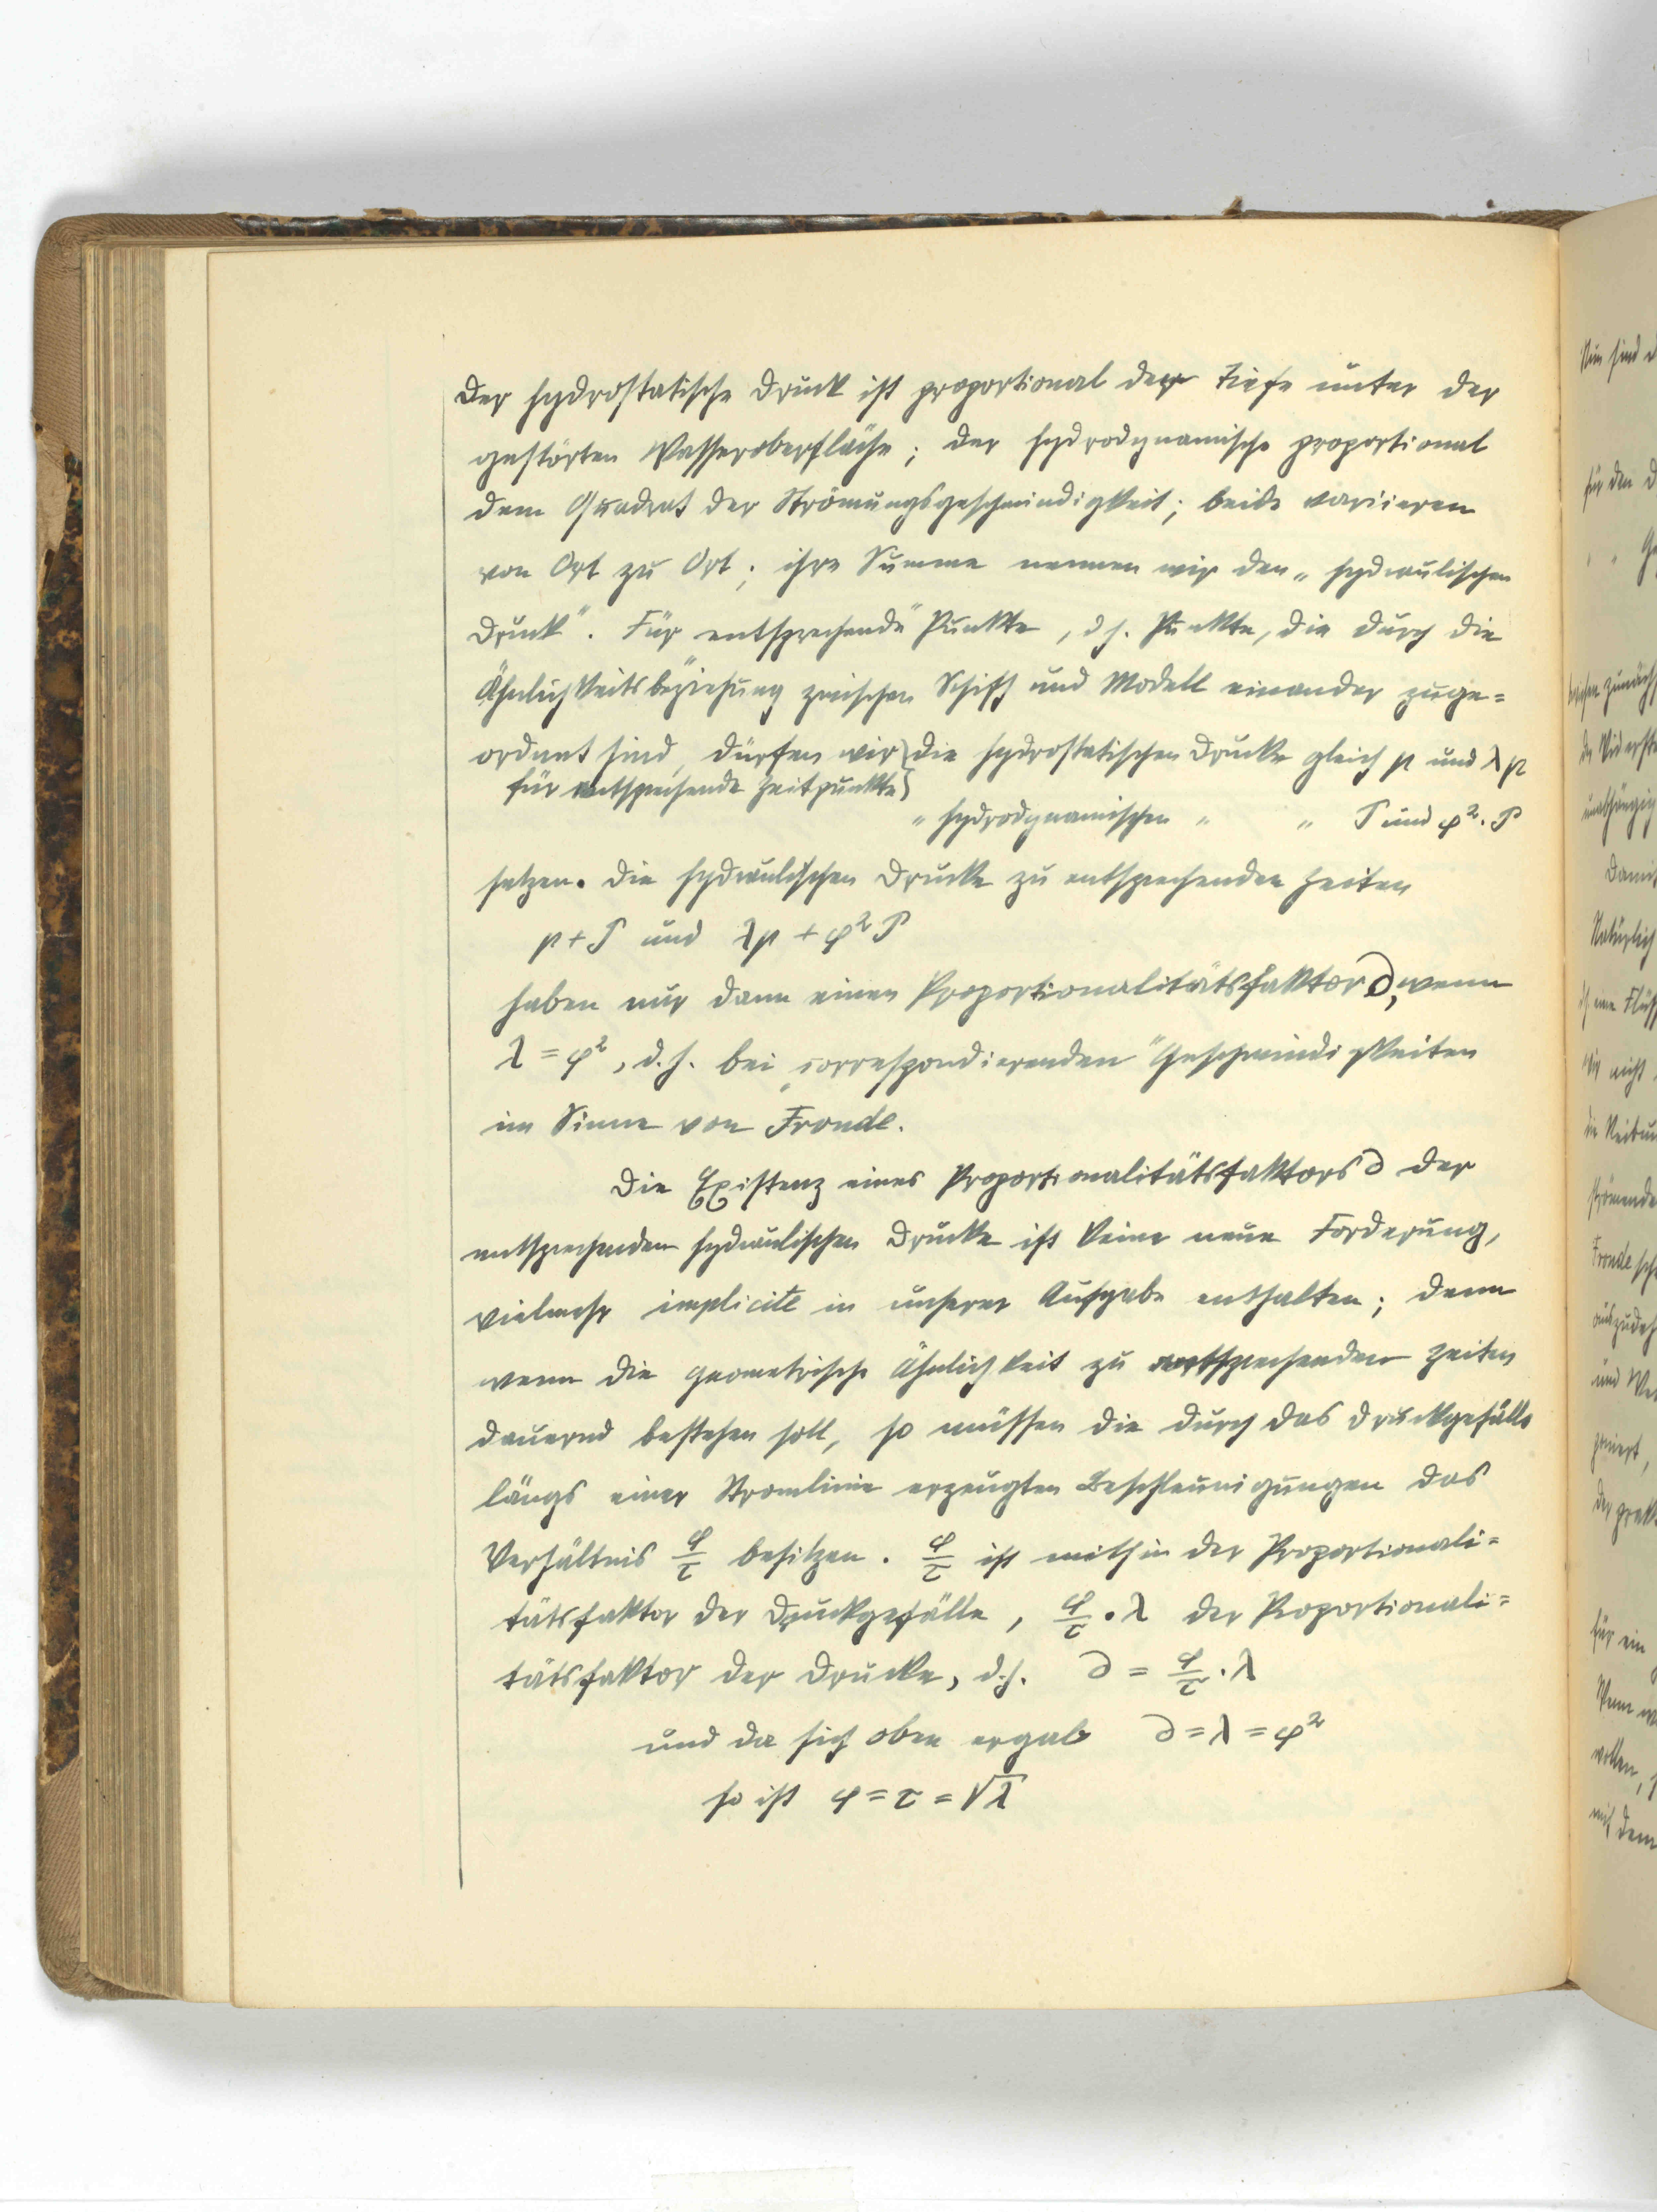 Der hydrostatische Druck ist proportional der Tiefe unter der
gestörten Wasseroberfläche; der hydrodynamische proportional
dem Quadrat der Strömungsgeschwindigkeit; beide variieren
von Ort zu Ort; ihre Summe nennen wir den „hydraulischen
Druck". Für entsprechende" Punkte, d h. Punkte, die durch die
Ähnlichkeitsbeziehung zwischen Schiff und Modell einander zuge=
ordnet sind, dürfen wir } die hydrostatischen Drucke gleich p und λp
für entsprechende Zeitpunkte }
" hydrodynamischen " " P und φ². P
setzen. Die hydraulischen Drucke zu entsprechenden Zeiten
p + P und λp + φ² P
haben nur dann einen Proportionalitätsfaktor ∂, wenn
λ = φ², d. h. bei „correspondierenden" Geschwindigkeiten
im Sinne von Froude.
Die Existenz eines Proportionalitätsfaktors ∂ der
entsprechenden hydraulischen Drucke ist keine neue Forderung,
vielmehr implicite in unserer Aufgabe enthalten; denn
wenn die geometrische Ähnlichkeit zu entsprechenden Zeiten
dauernd bestehen soll, so müssen die durch das Druckgefälle
längs einer Stromlinie erzeugten Beschleunigungen das
Verhältnis φ/τ besitzen. φ/τ ist mithin der Proportionali=
tätsfaktor der Druckgefälle, φ/τ · λ der Proportionali=
tätsfaktor der Drucke, d. h. ∂ = φ/τ · λ
und da sich oben ergab ∂ = λ = φ²
so ist φ = τ = √λ